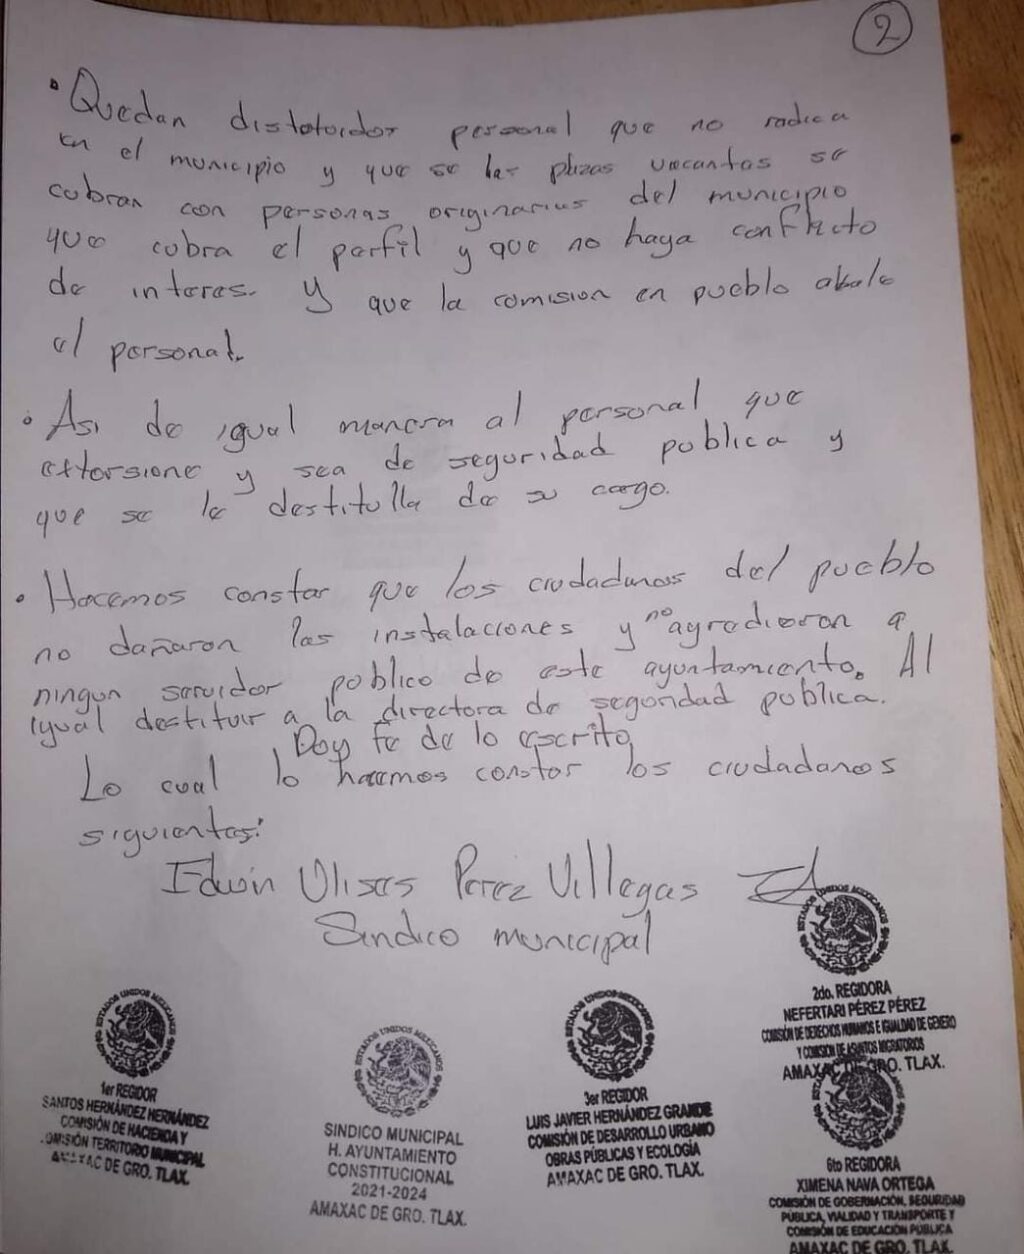 2
• Quedan distotuidor personal que no radica
en el municipio y que se las plazas vacantas se
cubran con personas originarias del municipio
que cubra el perfil y que no haya conflicto
de interes. Y que la comision en pueblo abale
al personal.
• Asi de igual manera al personal que
extorsione y sea de seguridad publica y
que se le destitulla de su cargo.
• Hacemos constar que los ciudadanos del pueblo
no dañaron las instalaciones y no agredieron a
ningun servidor publico de este ayuntamiento. Al
igual destituir a la directora de seguridad publica.
Doy fe de lo escrito
Lo cual lo hacemos constar los ciudadanos
siguientes:
Edwin Ulises Perez Villegas
Sindico municipal
ESTADOS UNIDOS MEXICANOS
2do. REGIDORA
NEFERTARI PÉREZ PÉREZ
COMISIÓN DE DERECHOS HUMANOS E IGUALDAD DE GENERO
Y COMISIÓN DE ASUNTOS MIGRATORIOS
AMAXAC DE GRO. TLAX.
ESTADOS UNIDOS MEXICANOS
1er REGIDOR
SANTOS HERNÁNDEZ HERNÁNDEZ
COMISIÓN DE HACIENDA Y
COMISIÓN TERRITORIO MUNICIPAL
AMAXAC DE GRO. TLAX.
ESTADOS UNIDOS MEXICANOS
SINDICO MUNICIPAL
H. AYUNTAMIENTO
CONSTITUCIONAL
2021-2024
AMAXAC DE GRO. TLAX.
ESTADOS UNIDOS MEXICANOS
3er REGIDOR
LUIS JAVIER HERNÁNDEZ GRANDE
COMISIÓN DE DESARROLLO URBANO
OBRAS PÚBLICAS Y ECOLOGÍA
AMAXAC DE GRO. TLAX.
6to REGIDORA
XIMENA NAVA ORTEGA
COMISIÓN DE GOBERNACIÓN, SEGURIDAD
PÚBLICA, VIALIDAD Y TRANSPORTE Y
COMISIÓN DE EDUCACIÓN PÚBLICA
AMAXAC DE GRO. TLAX.